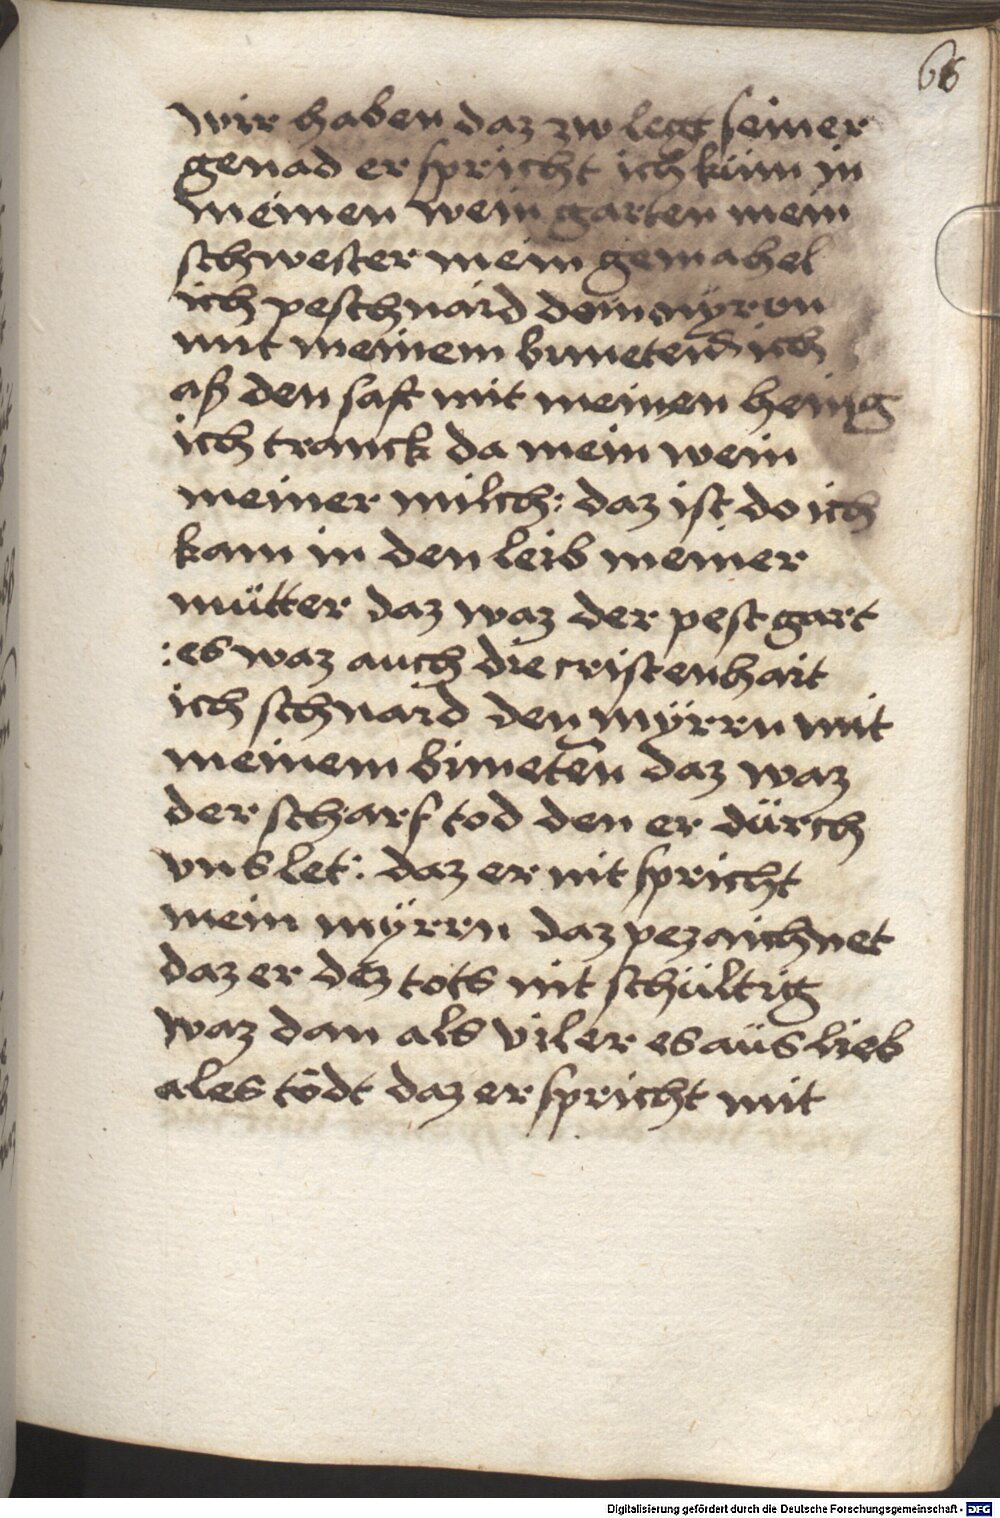 66
wir haben daz zw legt seiner
genad er spricht ich küm in
meinen wein garten mein
schwester mein gemahel
ich peschnaid den myrrn
mit meinem bimeten ich
aß den saft mit meinen henig
ich tranck da mein wein
meiner milch: daz ist do ich
kam in den leib meiner
mütter daz waz der pest gart
: es waz auch die cristenhait
ich schnaid den mÿrrn mit
meinem bimeten daz waz
der scharf tod den er dürch
vns let: daz er nit spricht
mein mÿrrn daz pezaichnet
daz er dez tots nit schültig
waz dan als vil er es aüs lieb
ales tödt daz er spricht mit
Digitalisierung gefördert durch die Deutsche Forschungsgemeinschaft - DFG